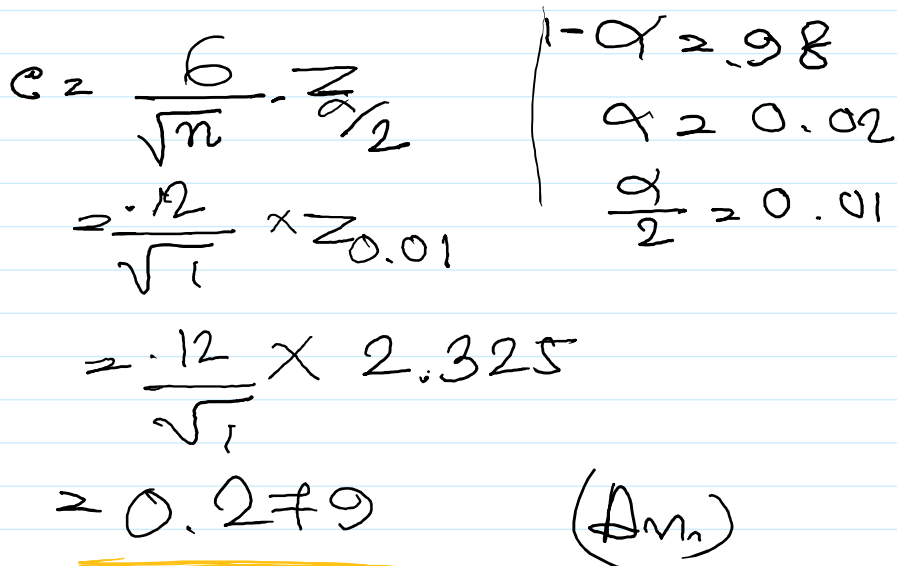 e = σ/√n · Z_α/2
= .12/√1 × Z_0.01
= .12/√1 × 2.325
= 0.279 (Ans)
1-α = .98
α = 0.02
α/2 = 0.01